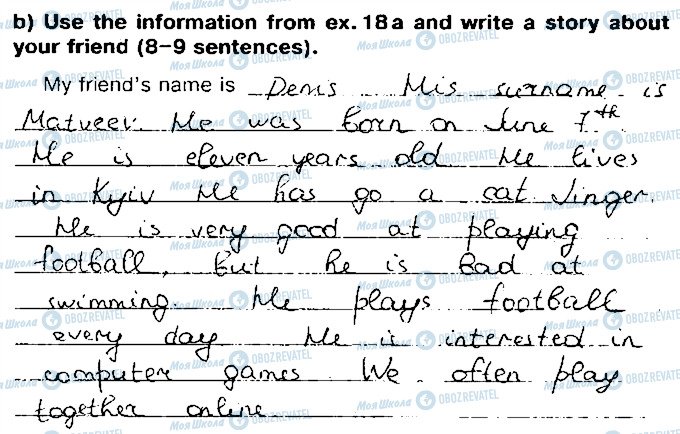 b) Use the information from ex. 18a and write a story about
your friend (8–9 sentences).
My friend's name is Denis His surname is
Matveev. He was born on June 7th.
He is eleven years old He lives
in Kyiv He has go a cat Jinger.
He is very good at playing
football, but he is bad at
swimming. He plays football
every day He is interested in
computer games We often play
together online